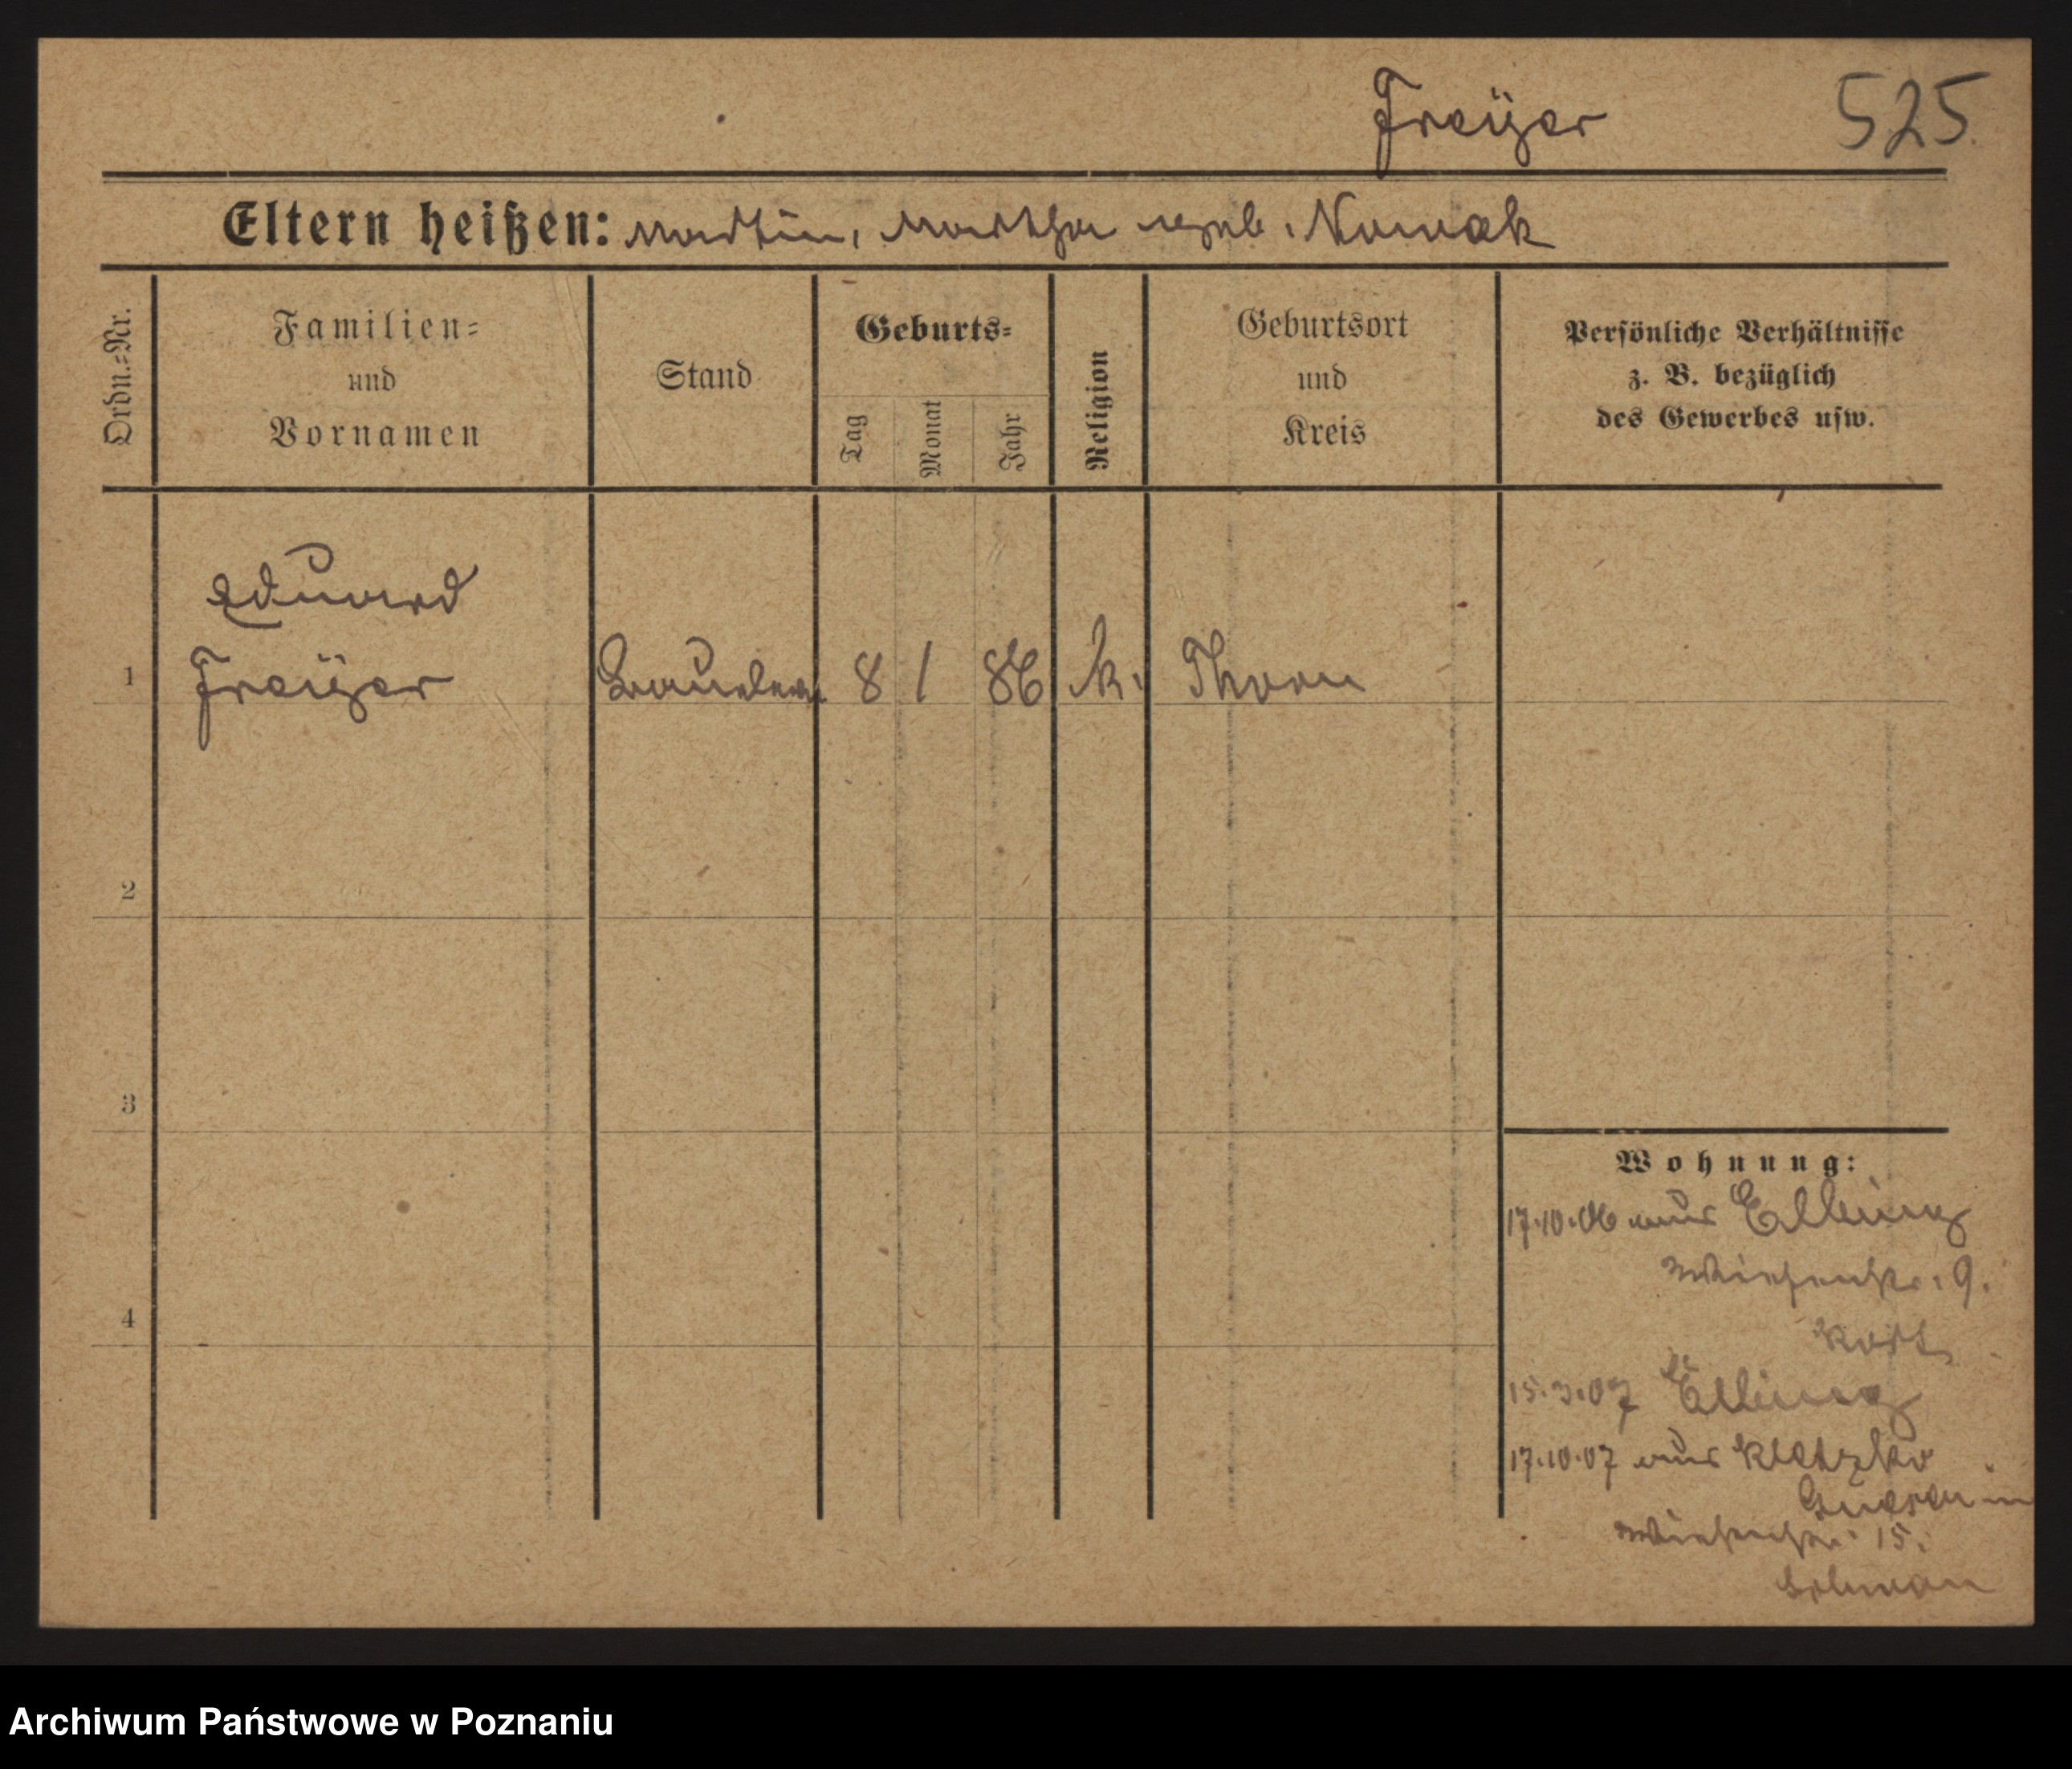 Freÿer 525
Eltern heißen: Martin, Martha geb. Nowak
Ordn.=Nr.
Familien=
und
Vornamen
Stand
Geburts=
Tag
Monat
Jahr
Religion
Geburtsort
und
Kreis
Persönliche Verhältnisse
z. B. bezüglich
des Gewerbes usw.
Eduard
1 Freÿer 8 1 86 k. Thorn
2
3
4
Wohnung:
17.10.06 aus Elbing
Wiesenstr. 9.
15.3.07 Elbing
17.10.07 aus Kletzko
Gnesen in
Wiesenstr. 15.
Archiwum Państwowe w Poznaniu